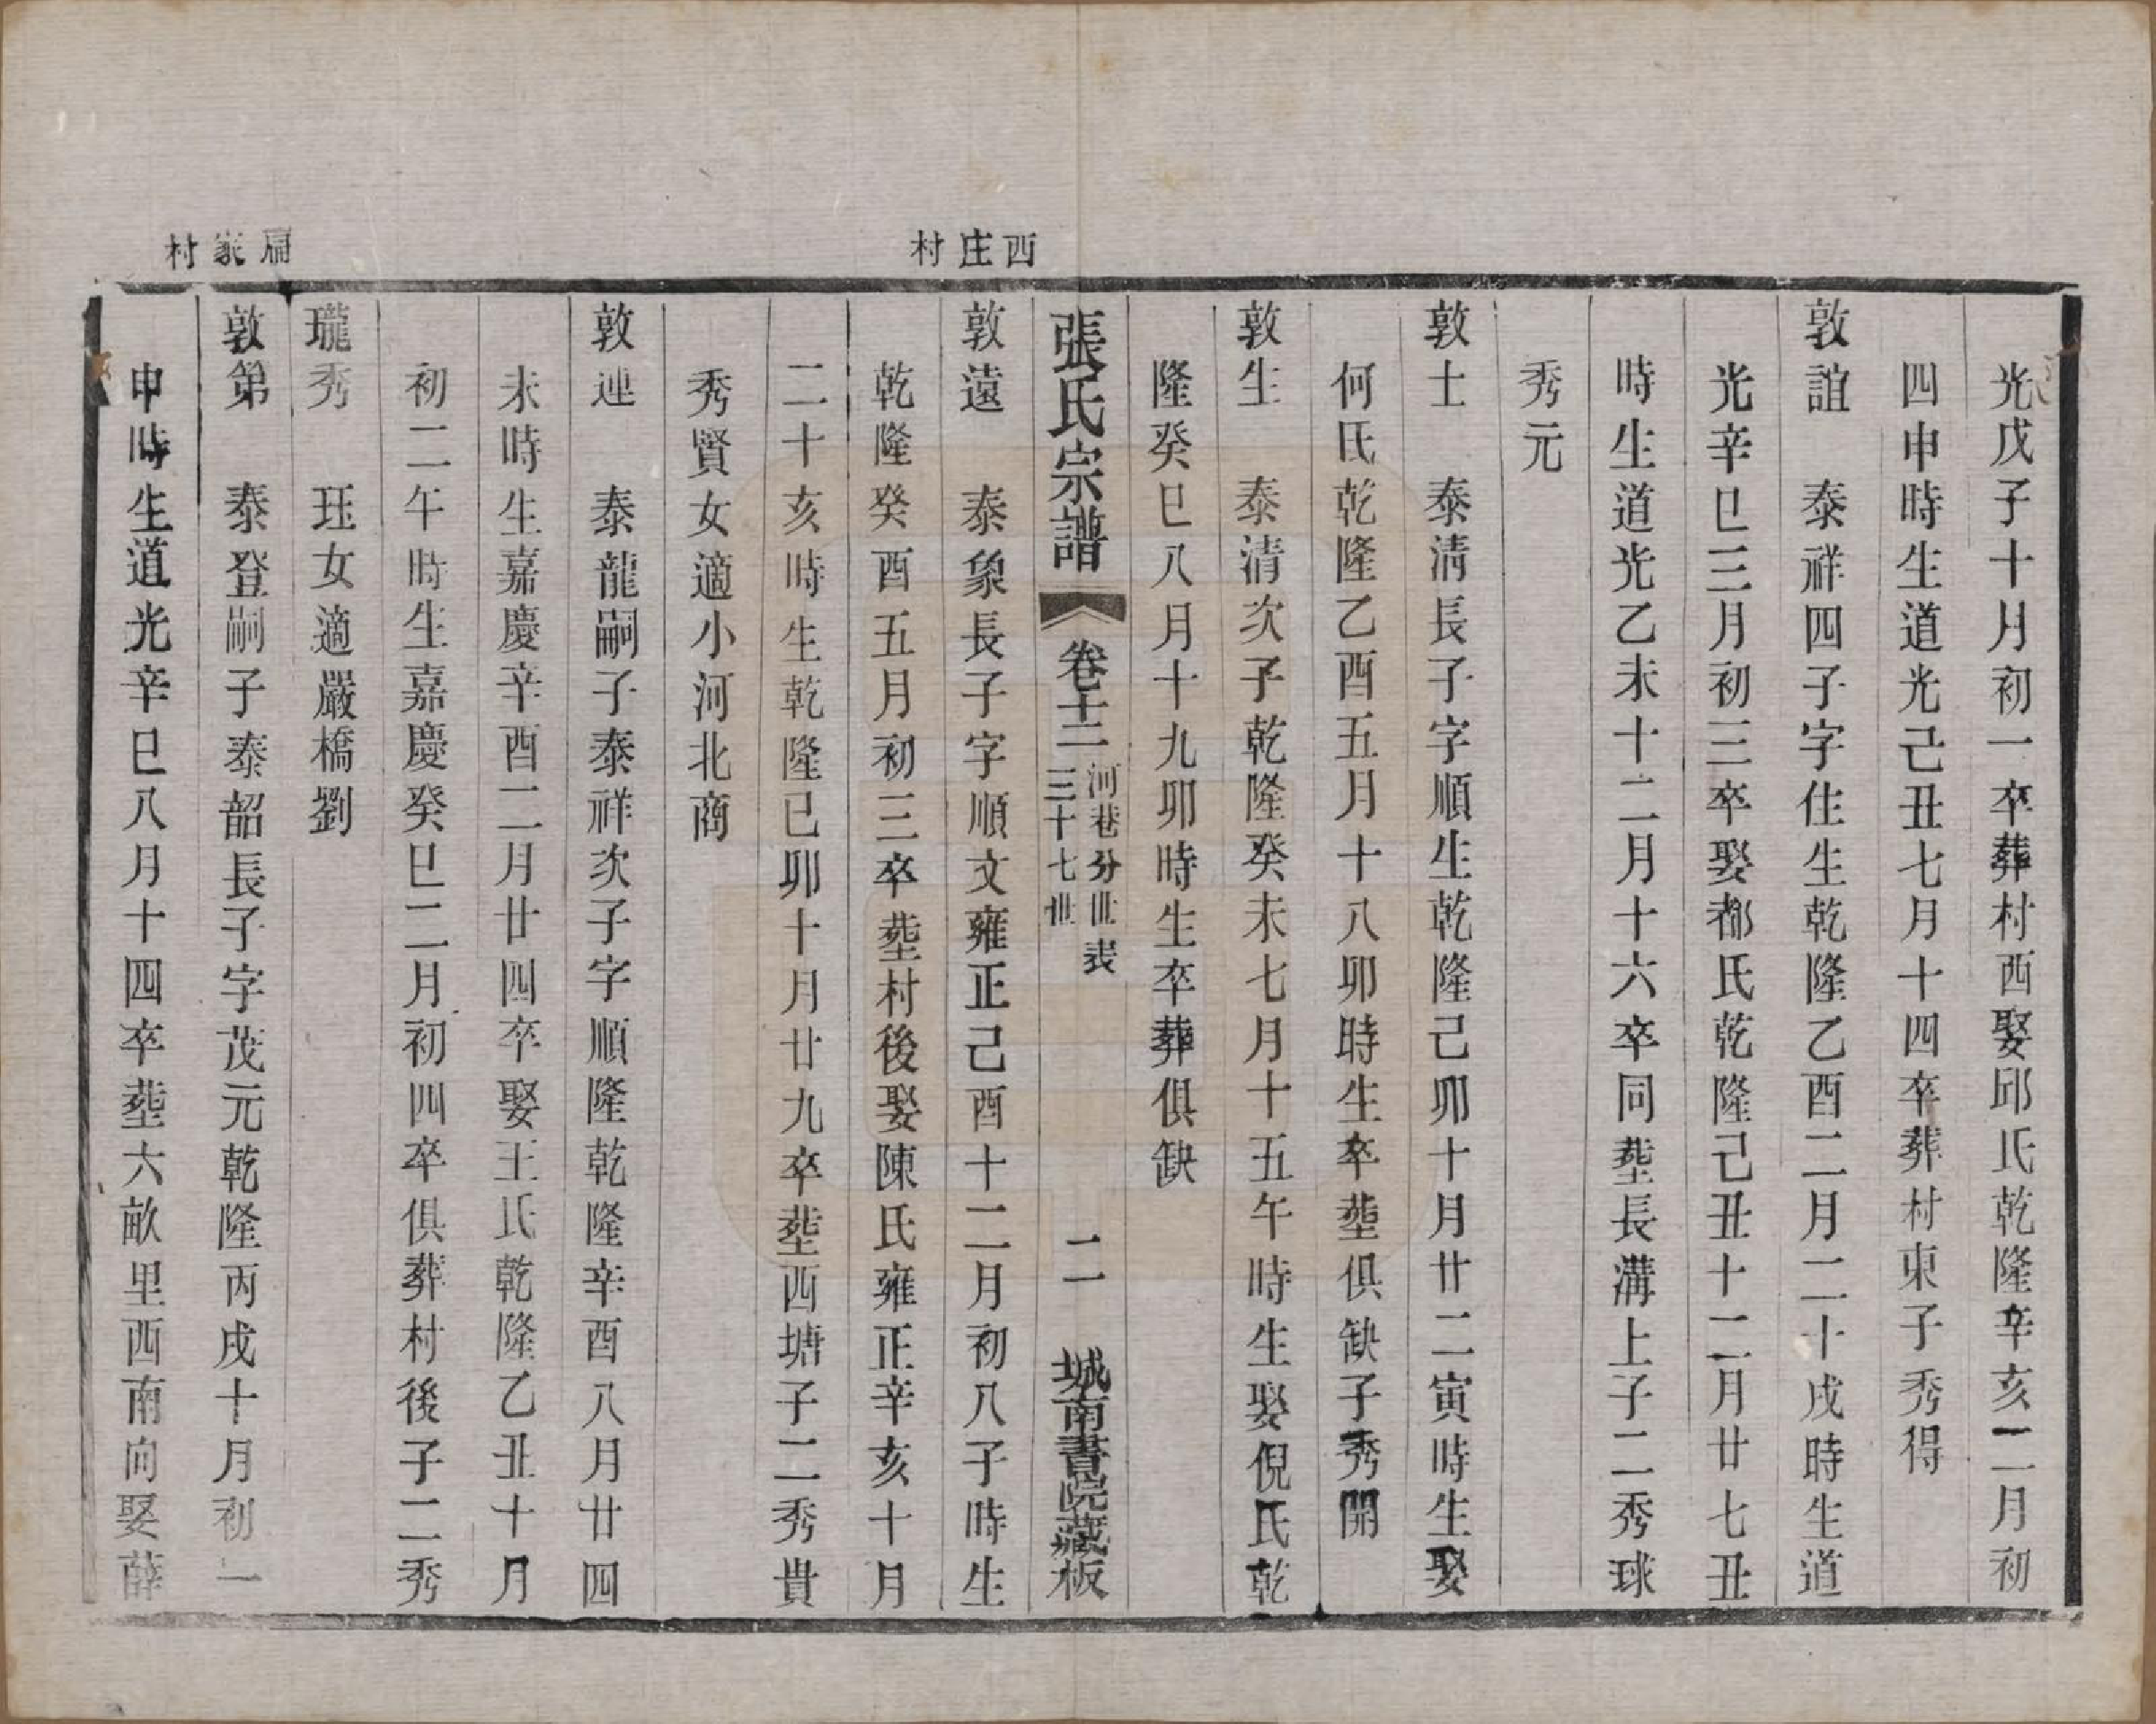 光戊子十月初一卒葬村西娶邱氏乾隆辛亥二月初
四申時生道光己丑七月十四卒葬村東子秀得
敦誼　泰祥四子字住生乾隆乙酉二月二十戌時生道
光辛巳三月初三卒娶都氏乾隆己丑十二月廿七丑
時生道光乙未十二月十六卒同塟長溝上子二秀球
秀元
敦士　泰清長子字順生乾隆己卯十月廿二寅時生娶
何氏乾隆乙酉五月十八卯時生卒塟俱缺子秀開
敦生　泰清次子乾隆癸未七月十五午時生娶倪氏乾
隆癸巳八月十九卯時生卒葬俱缺
張氏宗譜　卷十二　河巷分世表　三十七世　二　城南書院藏板
西庄村
敦遠　泰象長子字順文雍正己酉十二月初八子時生
乾隆癸酉五月初三卒塟村後娶陳氏雍正辛亥十月
二十亥時生乾隆己卯十月廿九卒塟西塘子二秀貴
秀賢女適小河北商
敦連　泰龍嗣子泰祥次子字順隆乾隆辛酉八月廿四
未時生嘉慶辛酉二月廿四卒娶王氏乾隆乙丑十月
初二午時生嘉慶癸巳二月初四卒俱葬村後子二秀
瓏秀　珏女適嚴橋劉
家村
敦第　泰登嗣子泰韶長子字茂元乾隆丙戌十月初一
申時生道光辛巳八月十四卒塟六畝里西南向娶薛